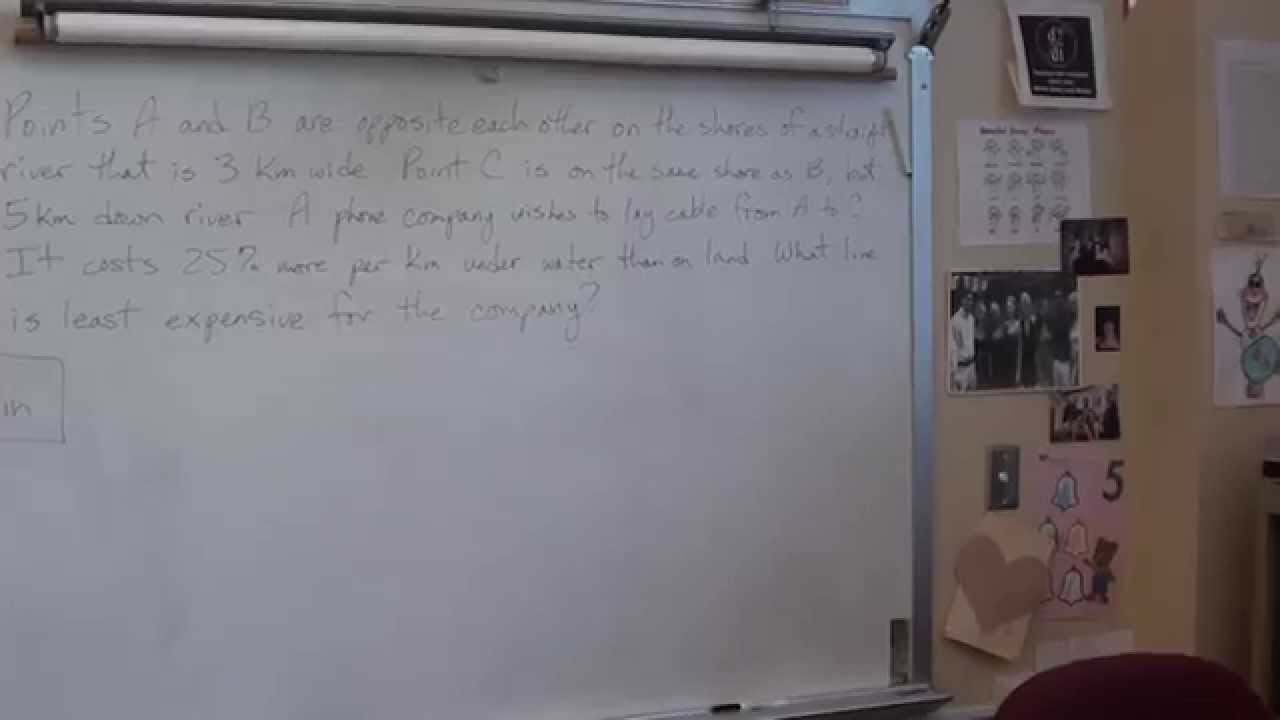 Points A and B are opposite each other on the shores of a straight
river that is 3 km wide Point C is on the same shore as B, but
5 km down river A phone company wishes to lay cable from A to
It costs 25% more per km under water than on land What line
is least expensive for the company?
in
5